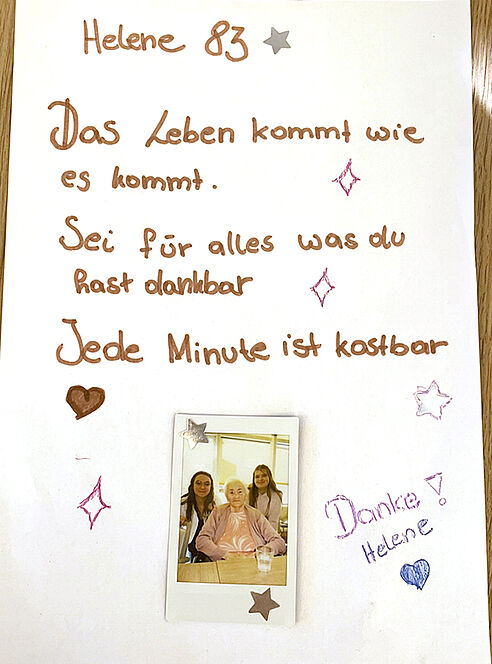 Helene 83
Das Leben kommt wie
es kommt.
Sei für alles was du
hast dankbar
Jede Minute ist kostbar
Danke!
Helene